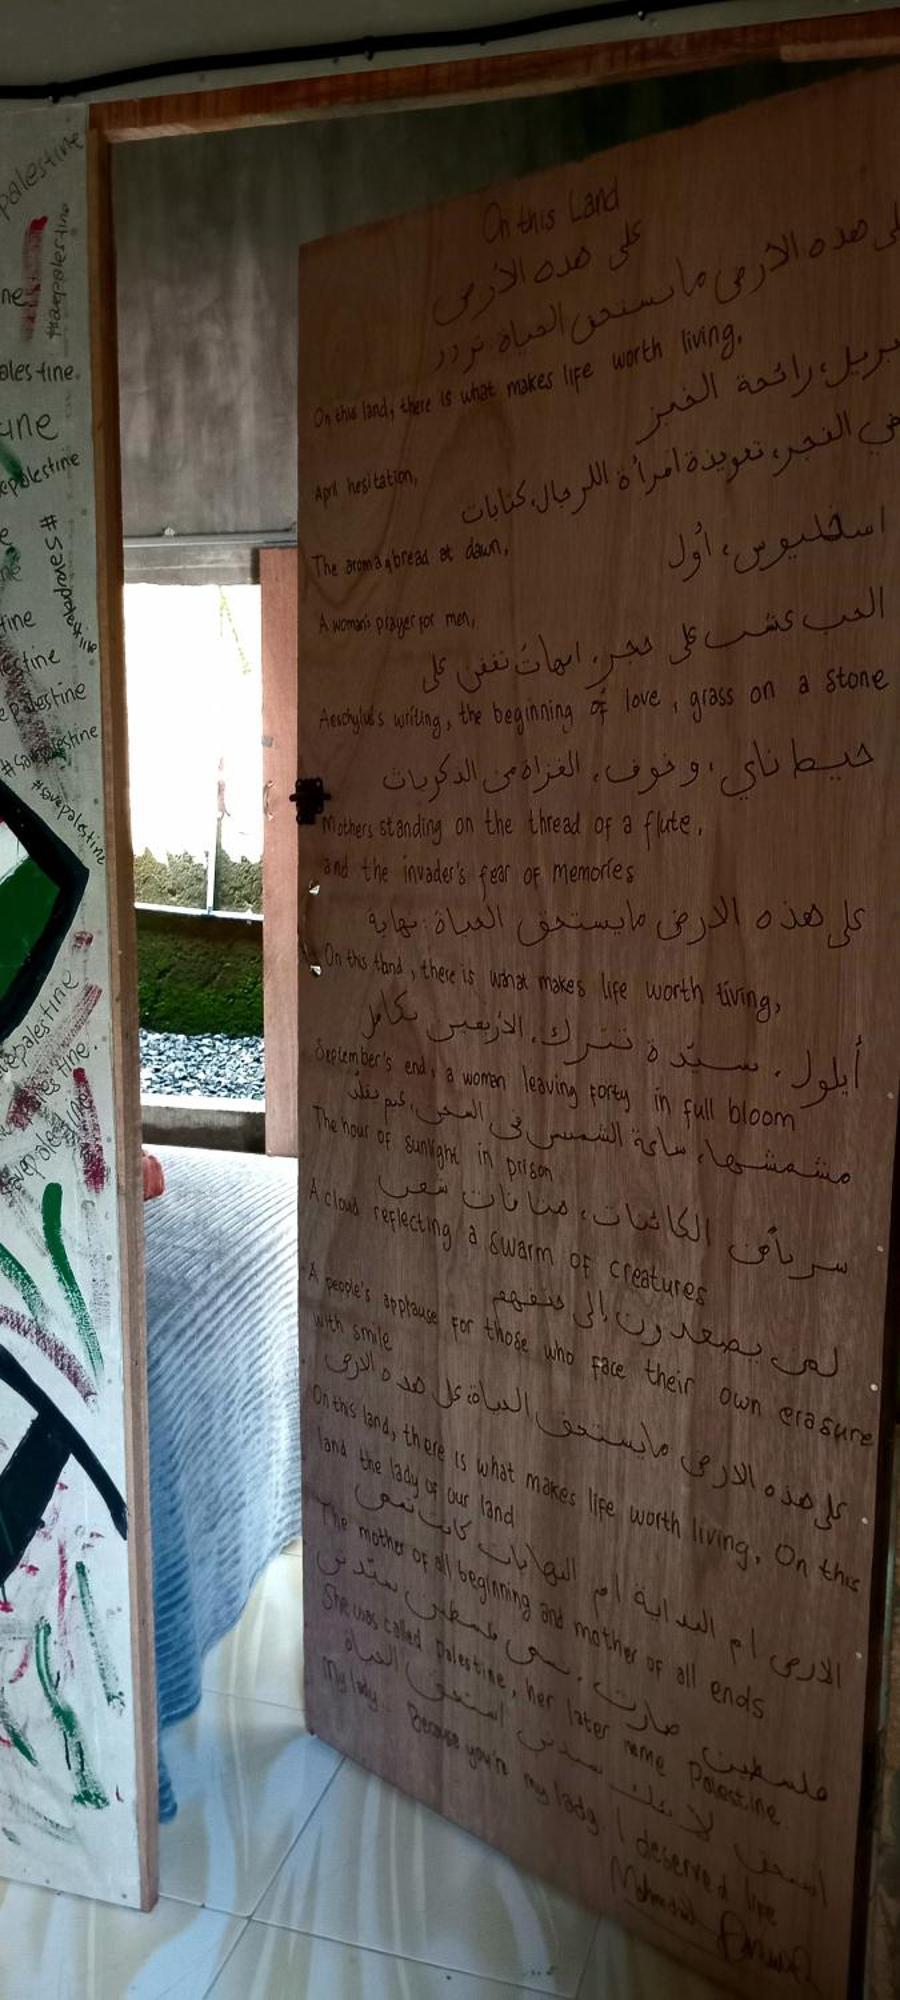 palestine
#savepalestine
ne
ales tine.
une
epalestine
e
#savepalestine
tine
estine
e palestine
#Savepalestine
#savepalestine
On this Land
على هذه الأرض
على هذه الأرض ما يستحق الحياة: تردد
On this land, there is what makes life worth living,
بريل، رائحة الخبز
April hesitation,
في الفجر، تعويذة امرأة للرجال، كتابات
The aroma of bread at dawn,
اسخليوس، أول
A woman's prayer for men,
الحب عشب على حجر، امهات تقفن على
Aeschylus's writing, the beginning of love, grass on a stone
خيط ناي، وخوف، الغزاة من الذكريات
Mothers standing on the thread of a flute,
and the invader's fear of memories
على هذه الارض مايستحق الحياة: نهاية
On this land, there is what makes life worth living,
أيلول، سيّدة تترك، الأربعين بكامل
September's end, a woman leaving forty in full bloom
مشمشها، ساعة الشمس في السجن، غيم يقلّد
The hour of sunlight in prison
سربا من الكائنات، هتافات شعب
A cloud reflecting a swarm of creatures
لمن يصعدون إلى حتفهم
A people's applause for those who face their own erasure
with smile
على هذه الارض مايستحق الحياة، على هذه الارض
On this land, there is what makes life worth living, On this
land the lady of our land
الارض ام البداية ام النهايات كانت تسمى
The mother of all beginning and mother of all ends
فلسطين صارت تسمى فلسطين سيّدتي
She was called palestine, her later name Palestine
استحق لانك سيدتي استحق الحياة
My lady.. Because you're my lady. I deserved life
Mahmoud